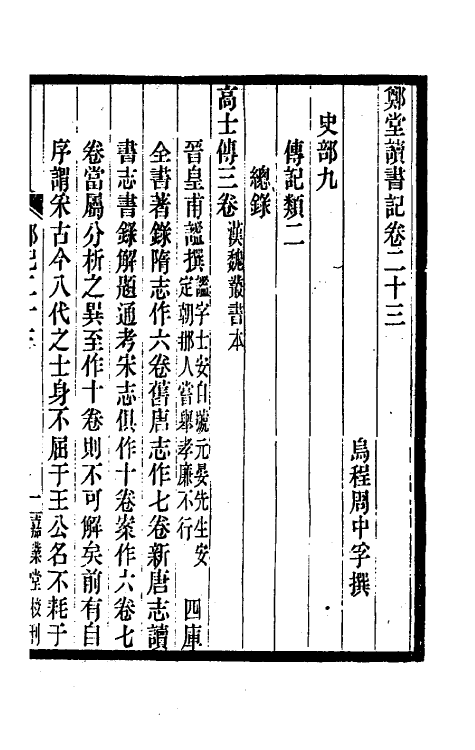 鄭堂讀書記卷二十三
烏程周中孚撰
史部九
傳記類二
總錄
高士傳三卷 漢魏叢書本
晉皇甫謐撰 謐字士安自號元晏先生安定朝那人嘗舉孝廉不行 四庫
全書著錄隋志作六卷舊唐志作七卷新唐志讀
書志書錄解題通考宋志俱作十卷案作六卷七
卷當屬分析之異至作十卷則不可解矣前有自
序謂采古今八代之士身不屈于王公名不耗于
嘉業堂校刊